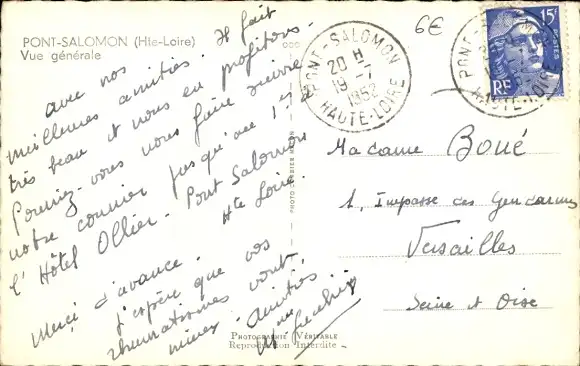 PONT-SALOMON (Hte-Loire)
Vue générale
avec nos
meilleures amitiés. Il fait
très beau et nous en profitons.
Pourriez-vous nous faire suivre
notre courrier jusqu'au 1er
l'Hôtel Ollier. Pont Salomon
Hte Loire
Merci d'avance.
J'espère que vos
rhumatismes vont
mieux. Amitiés
PHOTOGRAPHIE VÉRITABLE
Reproduction Interdite
6€
PONT-SALOMON
20 H
19-7
1952
HAUTE-LOIRE
15F
POSTES
RF
PONT
HAUTE-LOIRE
Madame Boué
1, Impasse des Gendarmes
Versailles
Seine et Oise